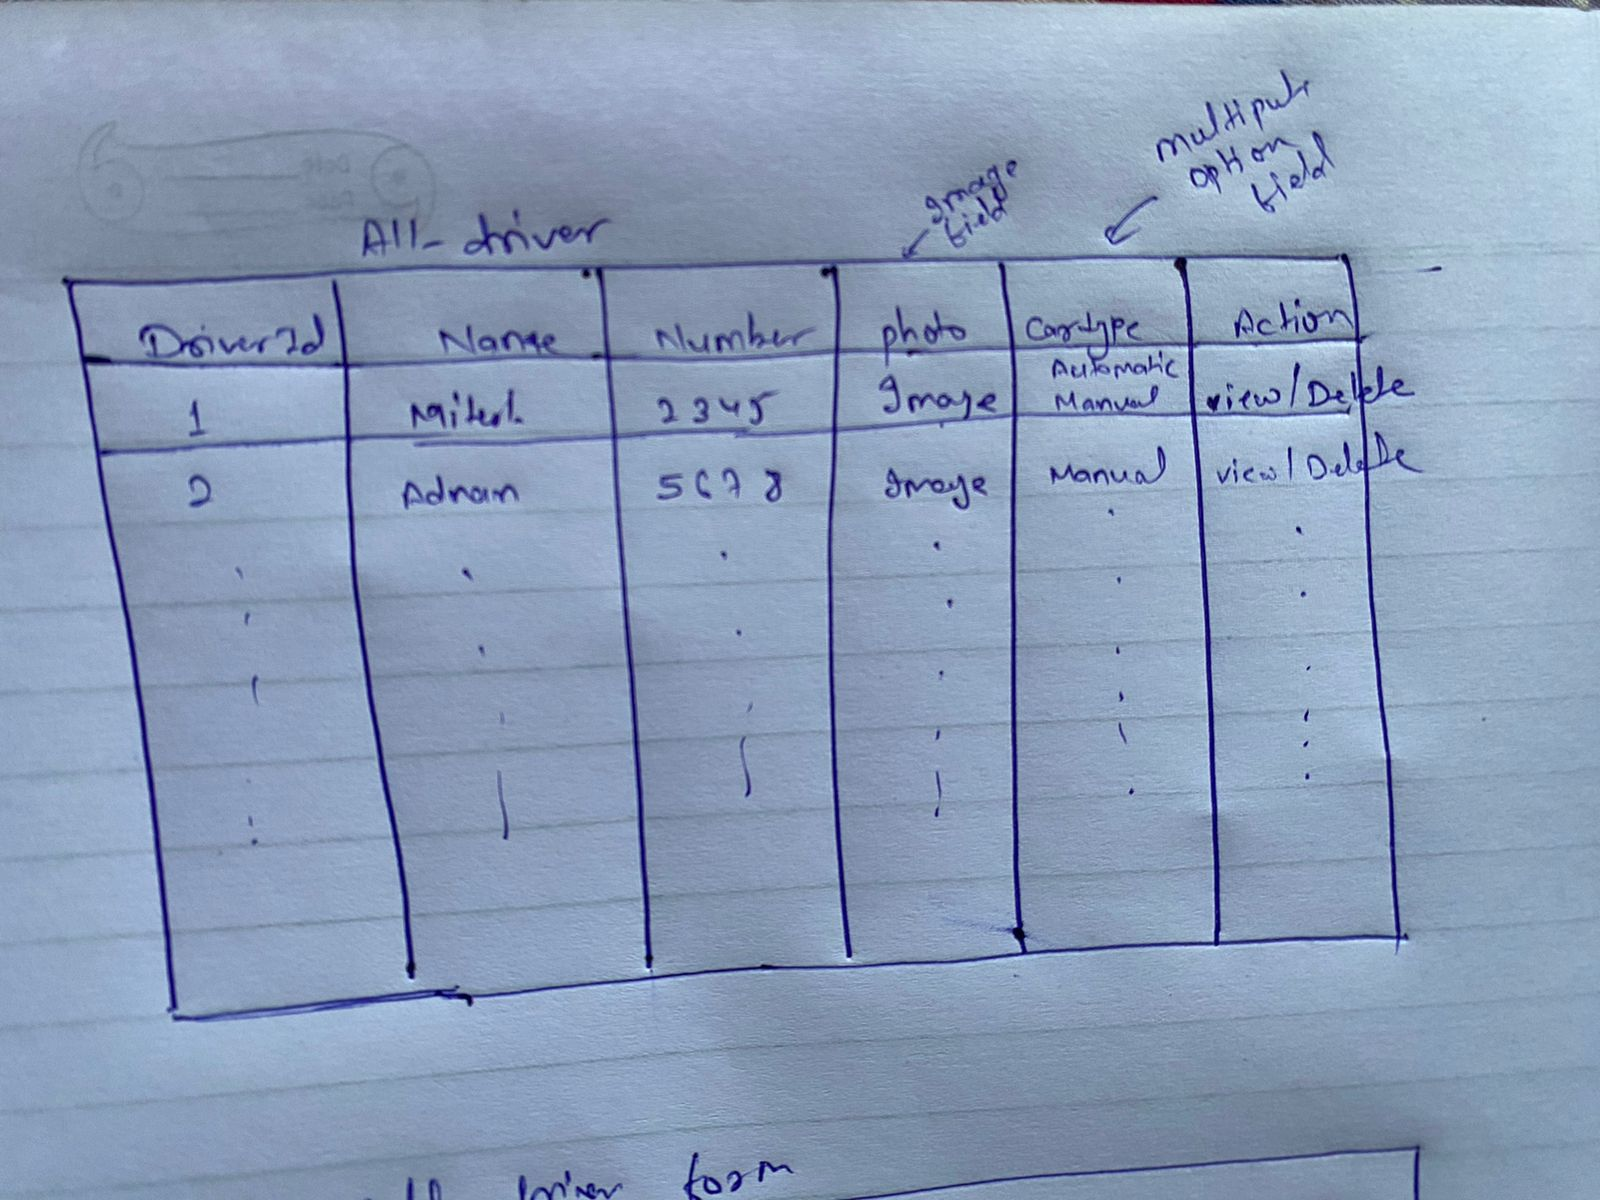 Image
field
Multiple
option
field
All-driver
DriverId Name Number photo Cartype Action
1 2345 Image Automatic Manual view/Delete
2 Adnan 5678 Image Manual view/Delete
driver form